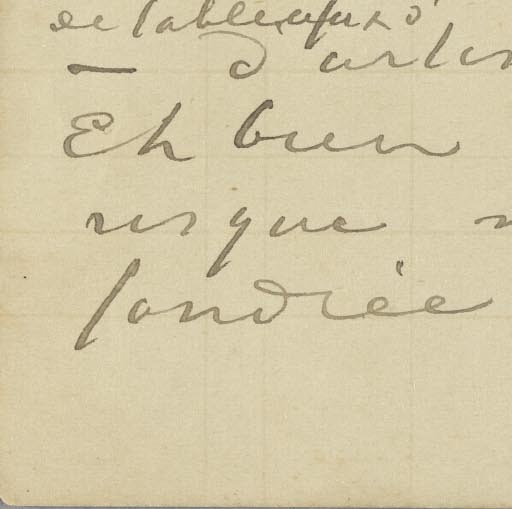 de tableaux
— d'artis
Eh bien
risque
fondrée